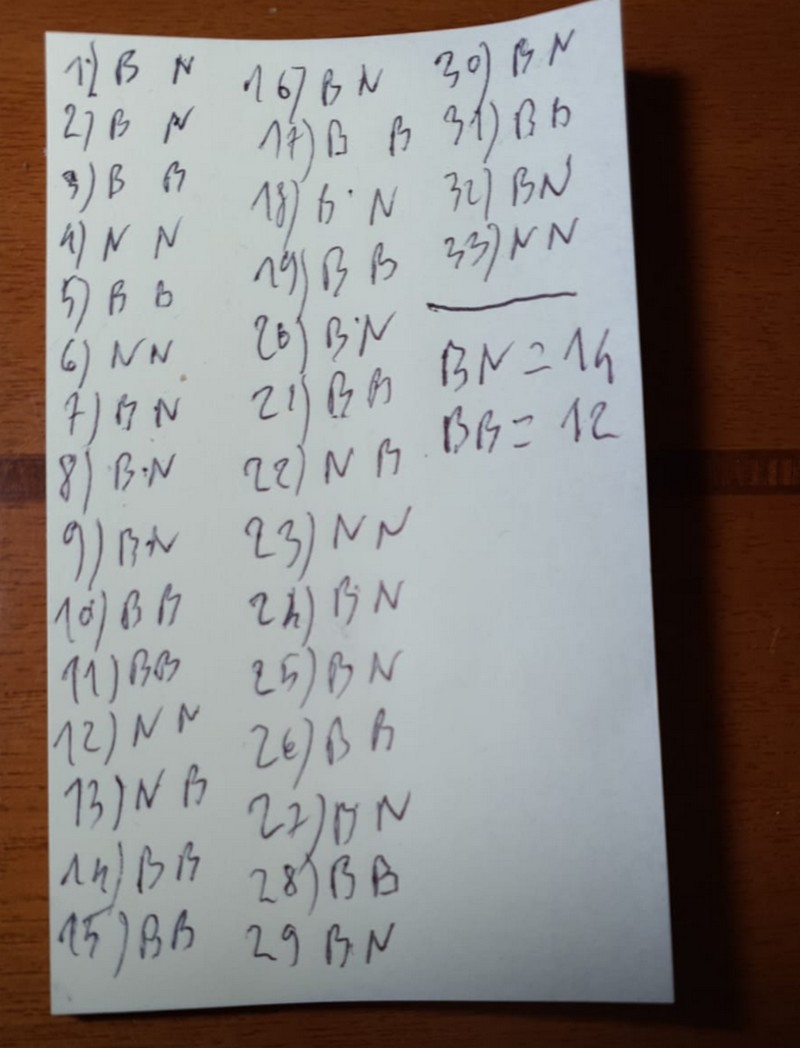 1) B N
2) B N
3) B B
4) N N
5) B B
6) N N
7) B N
8) B N
9) B N
10) B B
11) B B
12) N N
13) N B
14) B B
15) B B
16) B N
17) B B
18) B N
19) B B
20) B N
21) B B
22) N B
23) N N
24) B N
25) B N
26) B B
27) B N
28) B B
29 B N
30) B N
31) B B
32) B N
33) N N
BN = 14
BB = 12